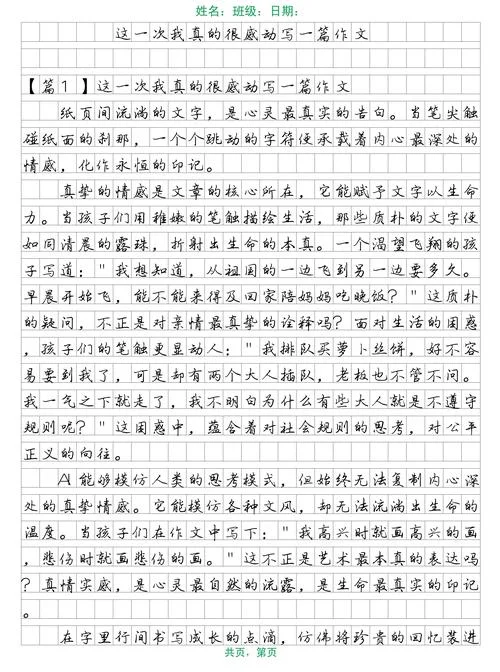 姓名：班级：日期：
这一次我真的很感动写一篇作文
【篇1】这一次我真的很感动写一篇作文
纸页间流淌的文字，是心灵最真实的告白。当笔尖触
碰纸面的刹那，一个个跳动的字符便承载着内心最深处的
情感，化作永恒的印记。
真挚的情感是文章的核心所在，它能赋予文字以生命
力。当孩子们用稚嫩的笔触描绘生活，那些质朴的文字便
如同清晨的露珠，折射出生命的本真。一个渴望飞翔的孩
子写道："我想知道，从祖国的一边飞到另一边要多久。
早晨开始飞，能不能来得及回家陪妈妈吃晚饭？"这质朴
的疑问，不正是对亲情最真挚的诠释吗？面对生活的困惑
，孩子们的笔触更显动人："我排队买萝卜丝饼，好不容
易要到我了，可是却有两个大人插队，老板也不管不问。
我一气之下就走了，我不明白为什么有些大人就是不遵守
规则呢？"这困惑中，蕴含着对社会规则的思考，对公平
正义的向往。
AI能够模仿人类的思考模式，但始终无法复制内心深
处的真挚情感。它能模仿各种文风，却无法流淌出生命的
温度。当孩子们在作文中写下："我高兴时就画高兴的画
，悲伤时就画悲伤的画。"这不正是艺术最本真的表达吗
？真情实感，是心灵最自然的流露，是生命最真实的印记
。
在字里行间书写成长的点滴，仿佛将珍贵的回忆装进
共页，第页